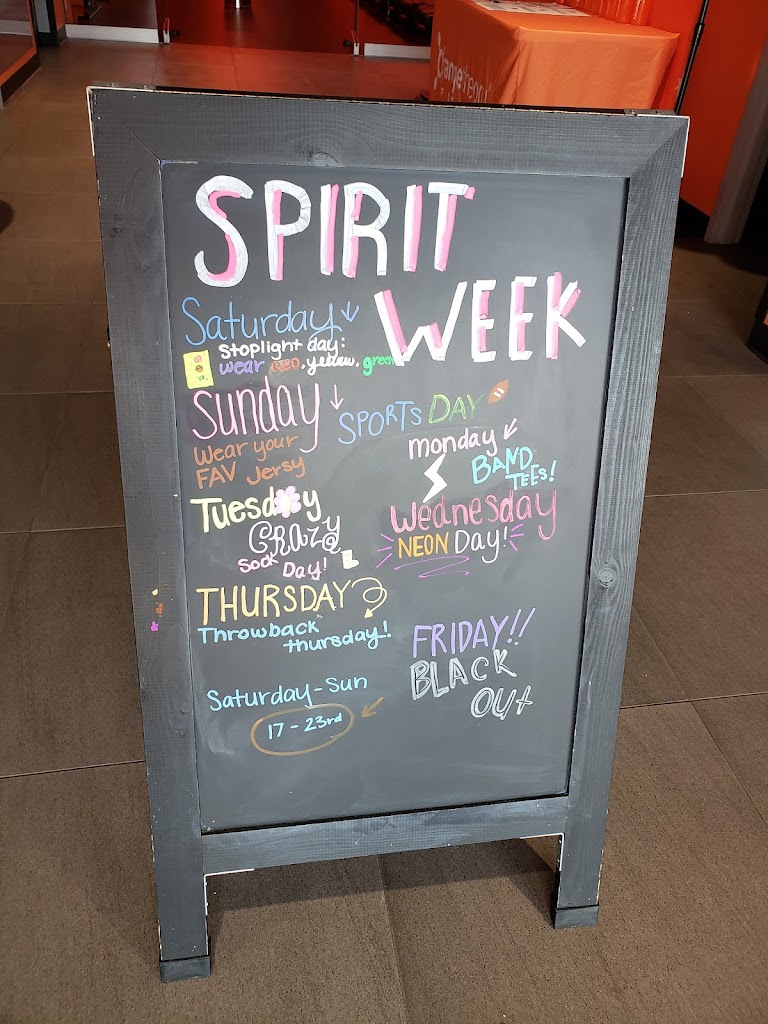 orangetheory
SPIRIT
WEEK
Saturday
Stoplight day:
wear RED, yellow, green
Sunday
SPORTS DAY
Wear your
FAV Jersy
monday
BAND
TEES!
Tuesday
CRAZY
Sock
Day!
Wednesday
NEON Day!
THURSDAY
Throwback
thursday!
FRIDAY!!
BLACK
OUT
Saturday-Sun
17-23rd